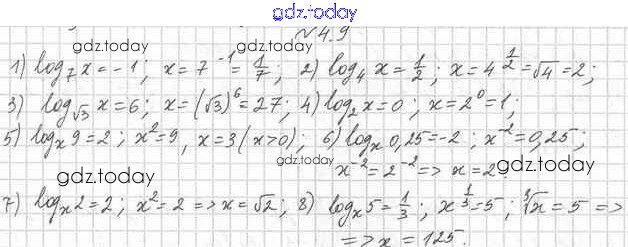 gdz.today
№4.9
gdz.today gdz.today
1) log₇ x = -1; x = 7⁻¹ = 1/7; 2) log₄ x = 1/2; x = 4^(1/2) = √4 = 2;
3) log_√3 x = 6; x = (√3)⁶ = 27; 4) log₂ x = 0; x = 2⁰ = 1;
5) logₓ 9 = 2; x² = 9, x = 3 (x>0); 6) logₓ 0,25 = -2; x⁻² = 0,25;
gdz.today
x⁻² = 2⁻² => x = 2
gdz.today gdz.today
7) logₓ 2 = 2; x² = 2 => x = √2; 8) logₓ 5 = 1/3; x^(1/3) = 5; ∛x = 5 =>
=> x = 125.
gdz.today